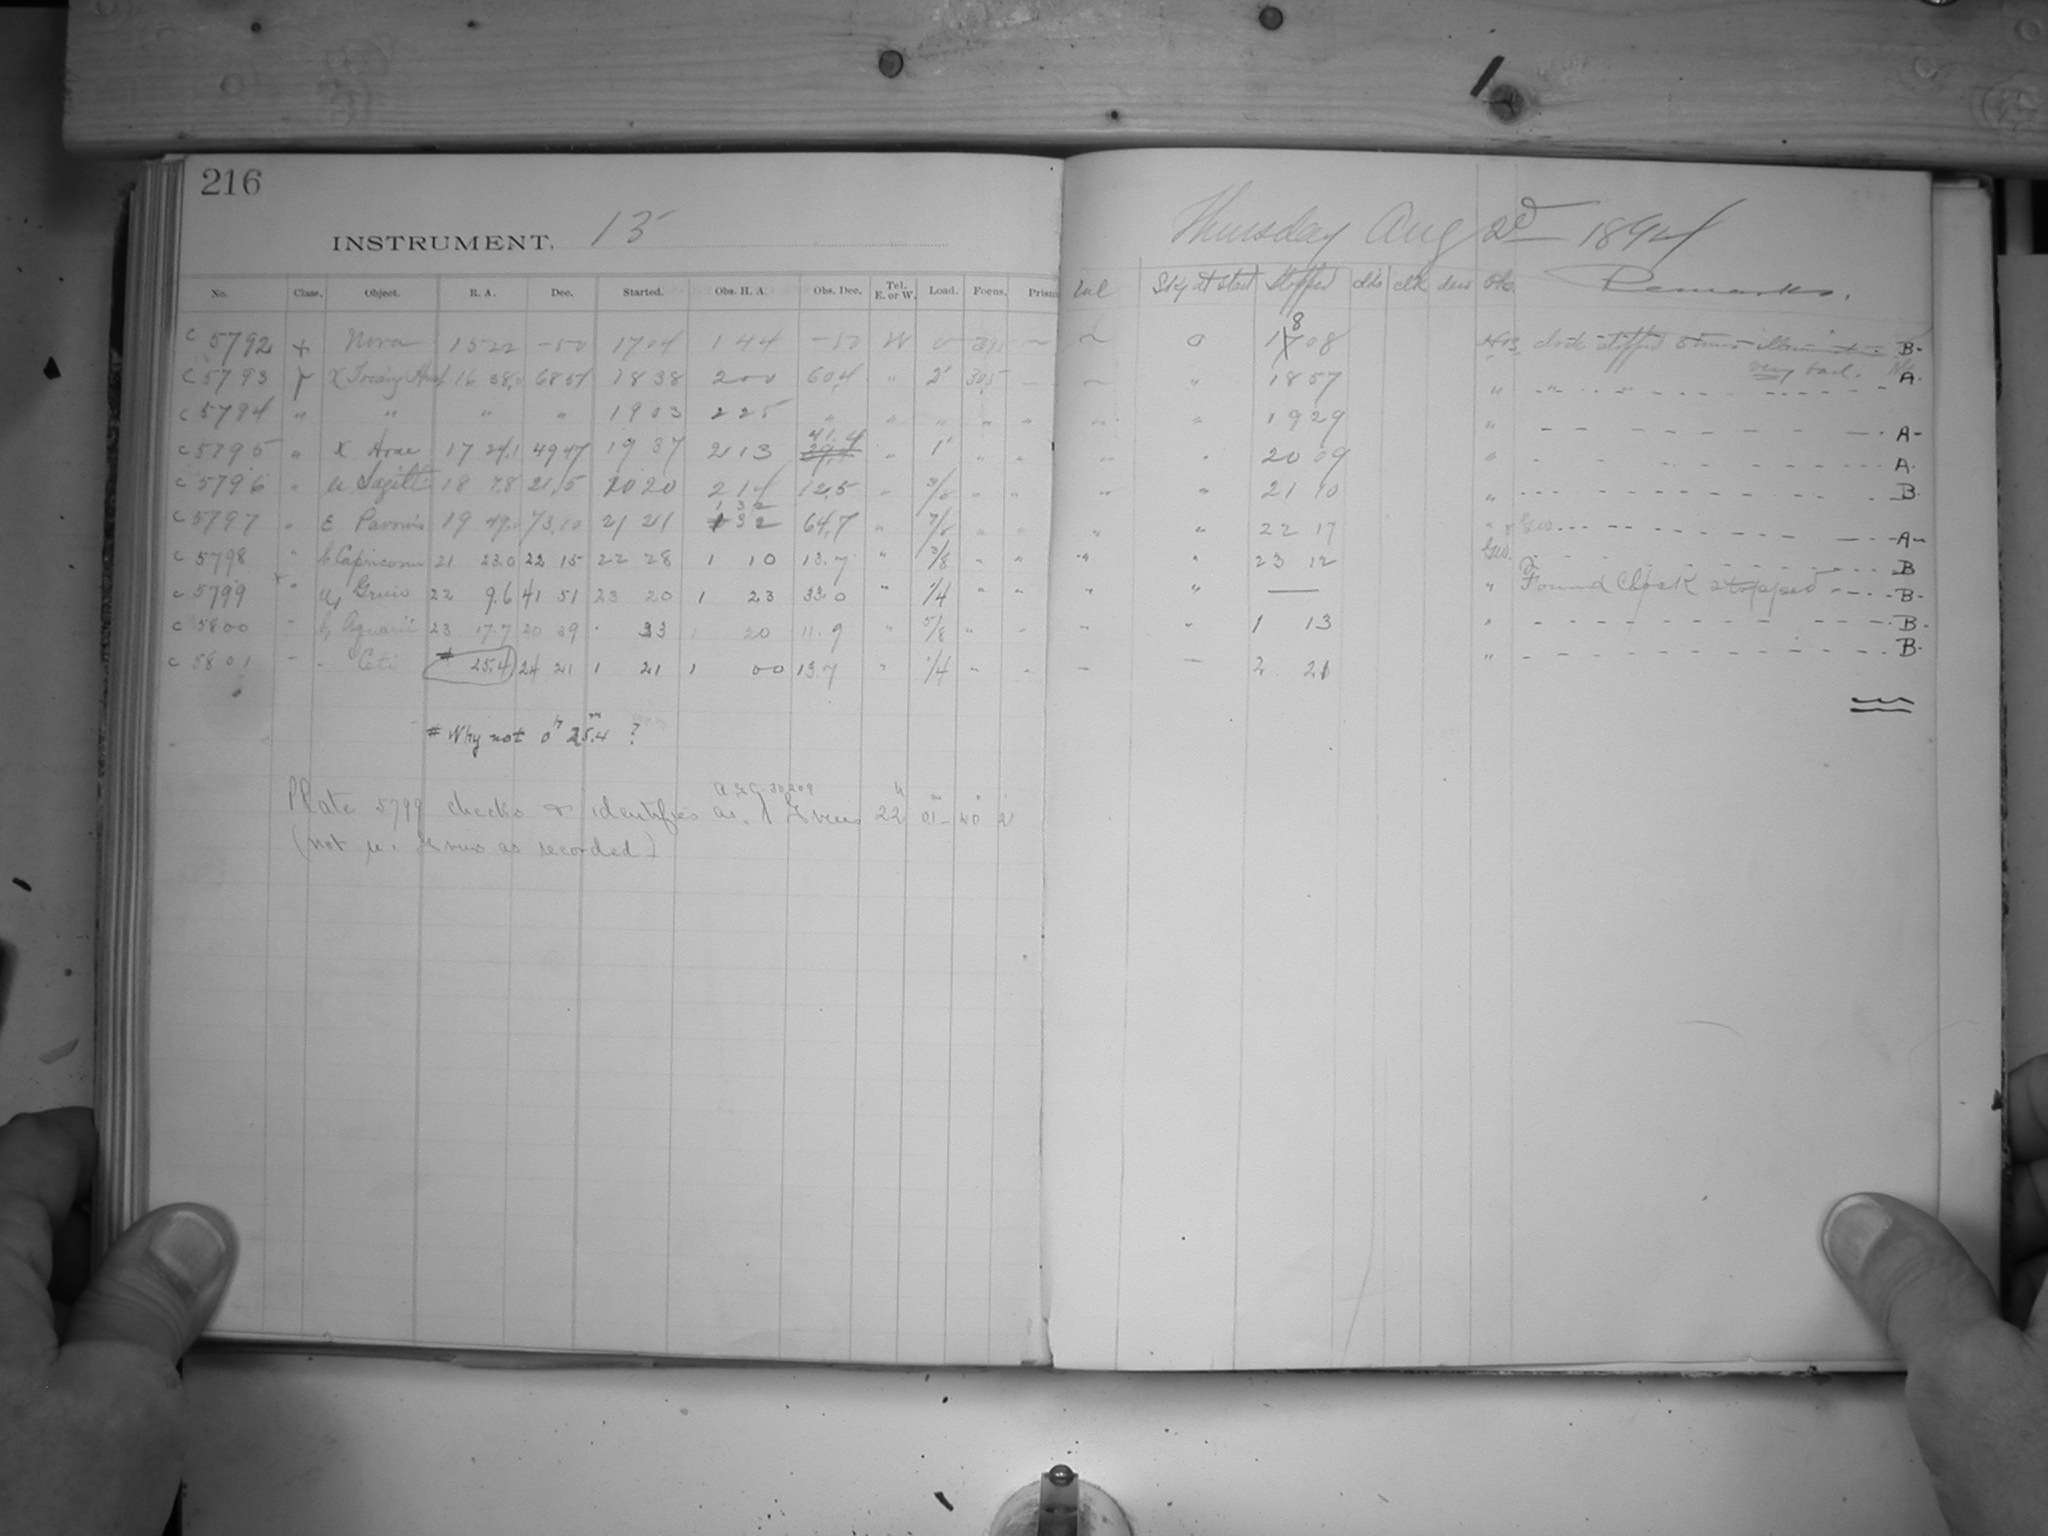 216
INSTRUMENT. 13
Thursday Aug 2d 1894
No. Class. Object. R. A. Dec. Started. Obs. H. A. Obs. Dec. Tel. E. or W. Load. Focus. Prism Sky at start Stopped clk dew Obs. Remarks.
c 5792 + Nova 15 22 -50 17 04 1 44 -50 W ~ 0 18 08 clock stopped 3 times Illumination B-
very bad.
c 5793 38,0 68 51 18 38 2 00 60,4 " 2' ~ " 18 57 " A-
c 5794 " " " " 19 03 2 25 " " " " " " 19 29 " A-
c 5795 " X Arae 17 24,1 49 47 19 37 2 13 41.4 " 1' " " " 20 09 " A-
c 5796 " Sagitt 18 7.8 21,5 20 20 2 14 12,5 " " " " " 21 10 " B-
c 5797 " E Pavonis 19 73,10 21 21 1 32 64,7 " 7/8 " " " " 22 17 A-
c 5798 " b Capricorni 21 23.0 22 15 22 28 1 10 13.7 " 3/8 " " " " 23 12 B
c 5799 Gruis 22 9.6 41 51 23 20 1 23 33.0 " 1/4 " " " " — " Found Clock stopped B-
c 5800 " Aquarii 23 17.7 20 39 33 1 20 11.9 " 5/8 " " " 1 13 " B-
c 5801 Ceti # 25.4 24 21 1 21 1 00 13.7 " 1/4 " 2 21 " B-
# Why not 0h 25.4m ?
Plate 5799 checks & identifies as λ Gruis 22h 01m - 40° 2'
A.G.C. 30,209
(not μ1 Grus as recorded)